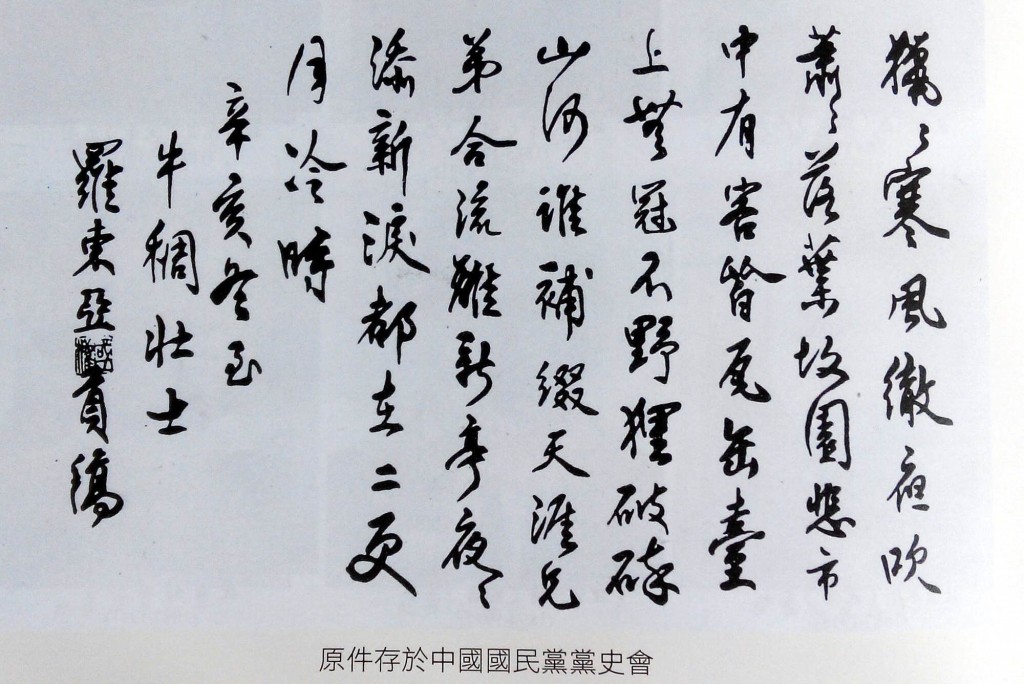 獵々寒風徹夜吹
蕭々落葉故園悲市
中有客皆瓦缶臺
上無冠不野狸破碎
山河誰補綴天涯兄
弟合流離新亭夜々
添新淚都在二更
月冷時
辛亥冬至
牛稠壯士
羅東亞貢稿
原件存於中國國民黨黨史會